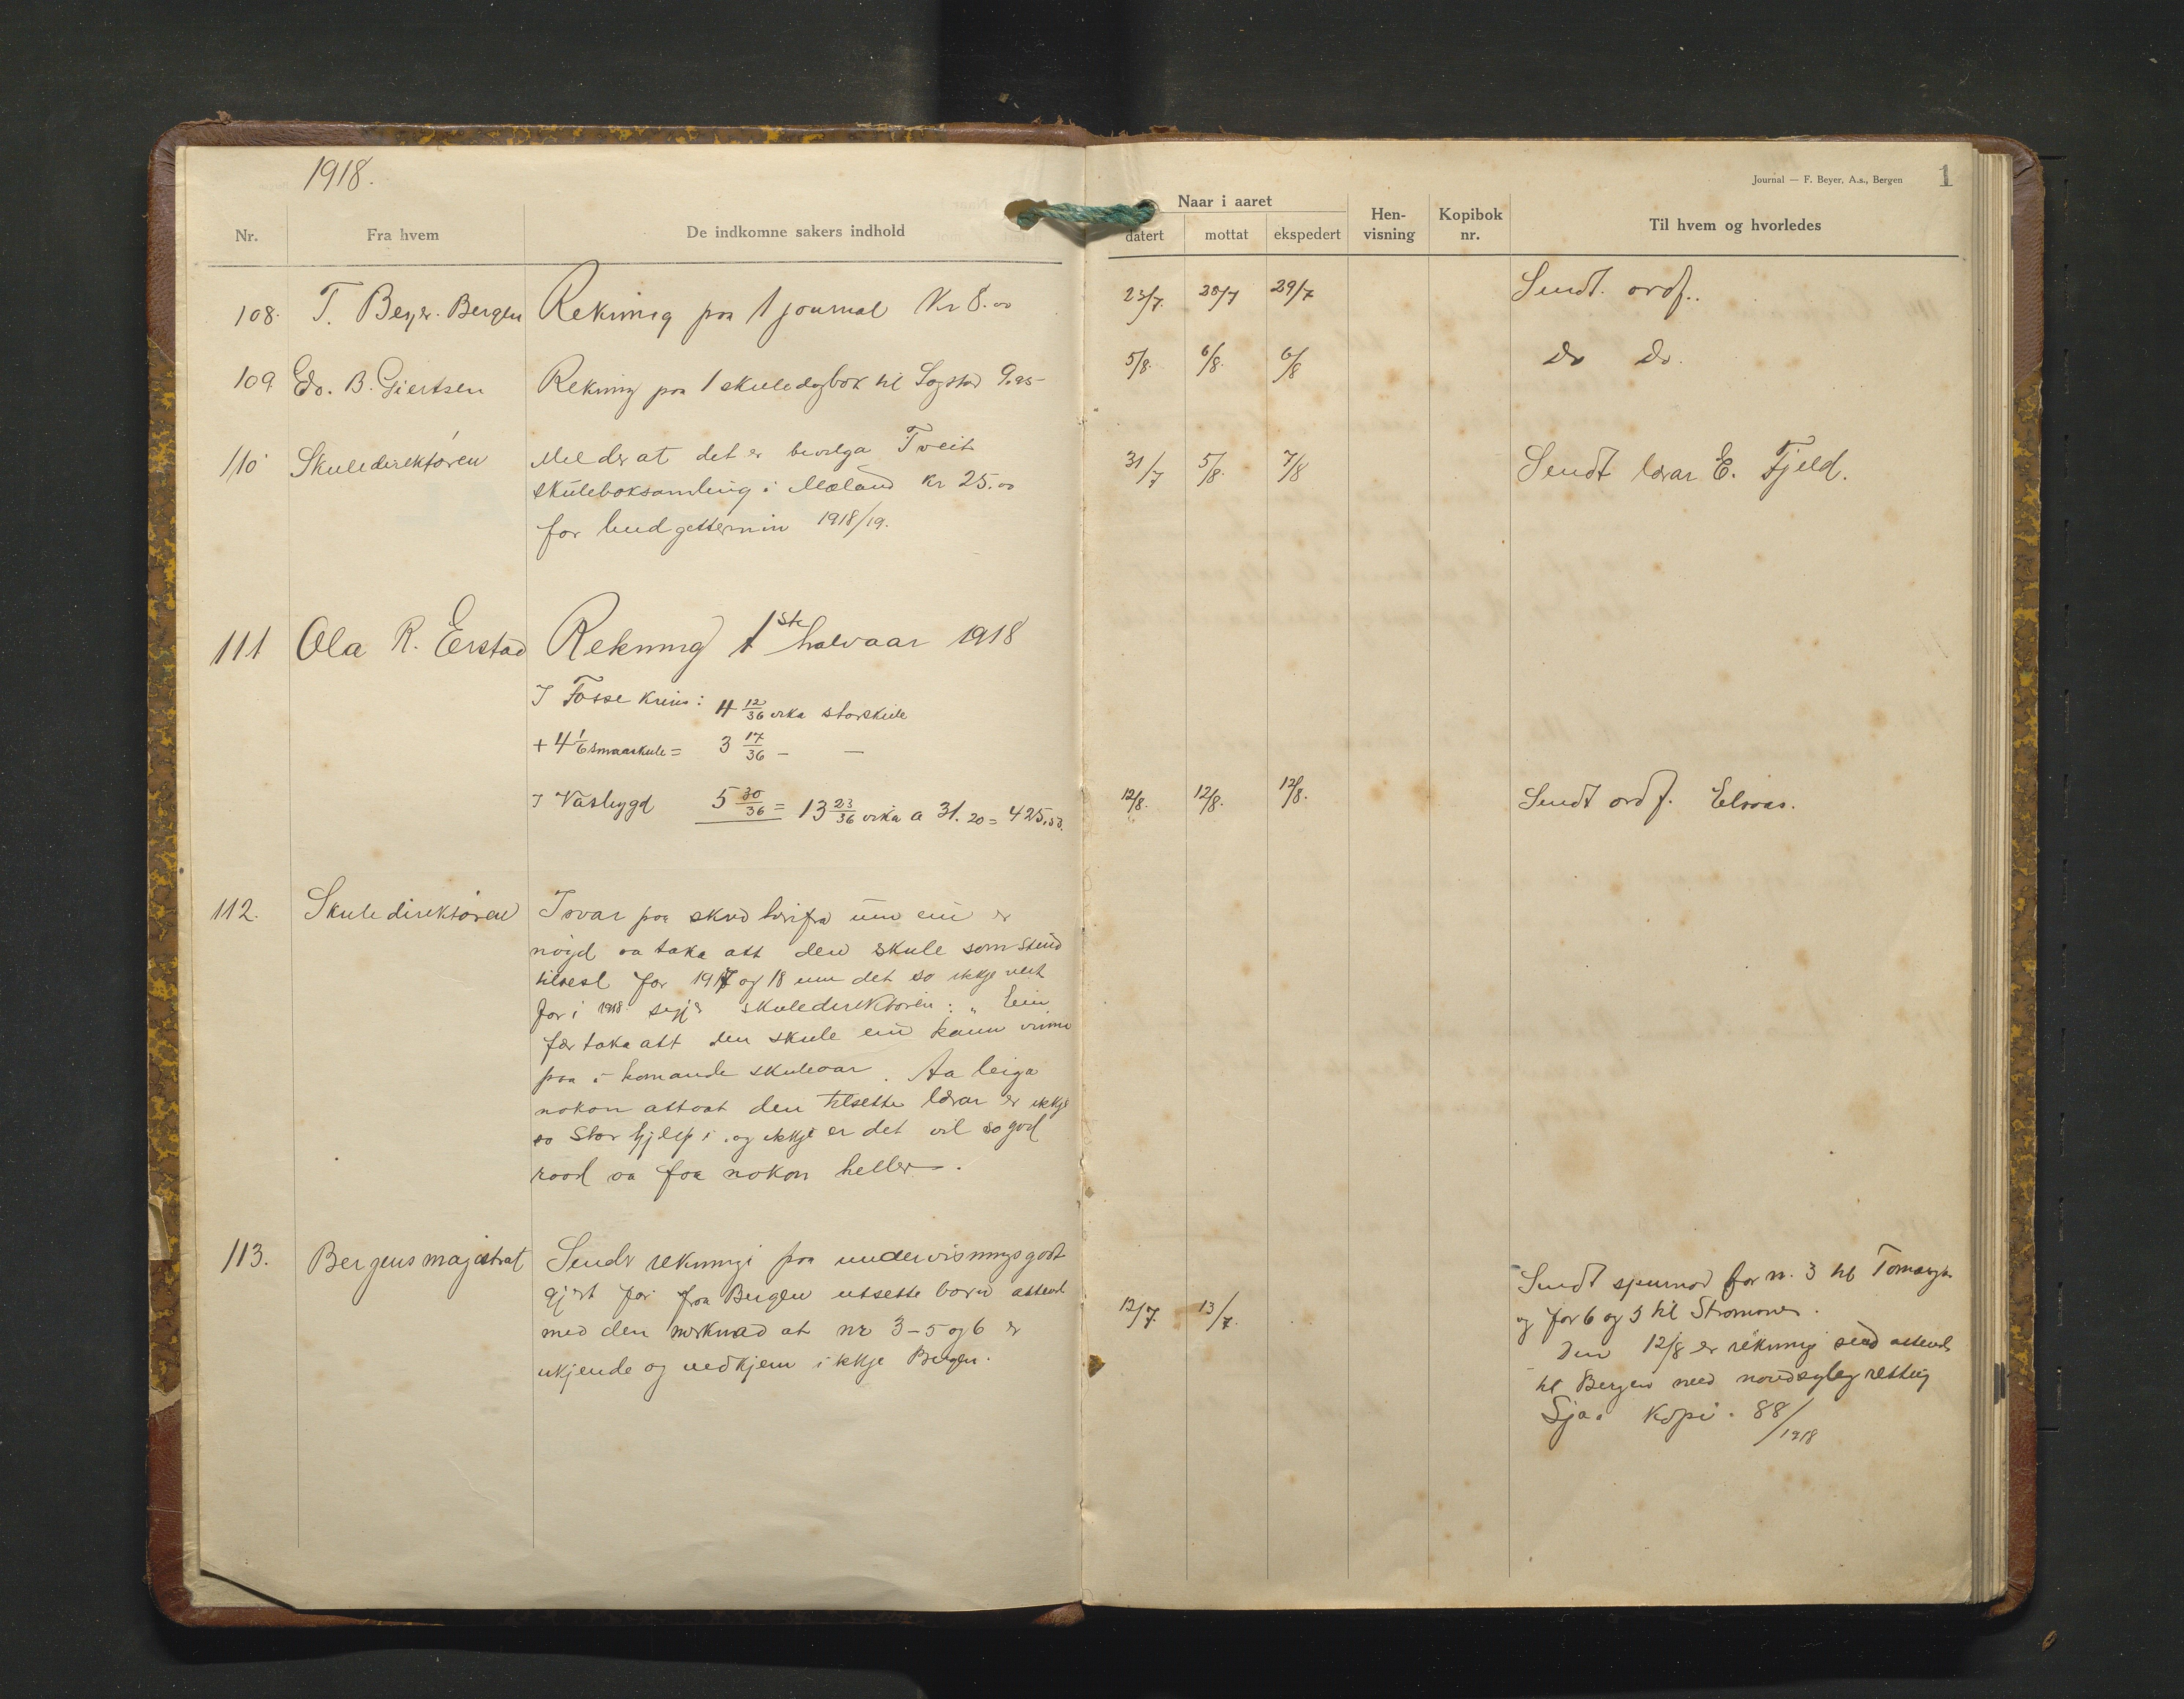 1918.
Journal — F. Beyer, A.s., Bergen 1
Nr. Fra hvem De indkomne sakers indhold
Naar i aaret
datert mottat ekspedert
Hen-
visning
Kopibok
nr.
Til hvem og hvorledes
108. F. Beyer. Bergen Rekning paa 1 journal Kr 8.00 23/7. 28/7 29/7 Sendt. ordf..
109 Ed. B. Giertsen Rekning paa 1 skuledagbok til Sogstad 9.25- 5/8. 6/8. 6/8 Do Do.
110 Skuledirektøren Melder at det er bevilga Tveit
skuleboksamling i Mæland Kr 25.00
for budgettermin 1918/19.
31/7 5/8. 7/8 Sendt lærar E. Fjeld.
111 Ola R. Eerstad Rekning 1ste halvaar 1918
I Fosse krins: 4 12/36 vika storskule
+ 4 1/6 smaaskule = 3 17/36 — —
I Vasbygd 5 30/36 = 13 23/36 vika a 31.20 = 425.53.
12/8. 12/8. 12/8. Sendt ordf. Elvaas.
112. Skuledirektøren Isvar paa skrd herifra um ein er
nøgd aa taka att den skule som stend
tilrest for 1917 og 18 um det so ikkje vert
for i 1918 segjer skuledirektøren: „Ein
fær taka att den skule ein kann vinna
paa i komande skuleaar. Aa leiga
nokon attaat den tilsette lærar er ikkje
so stor hjelp i, og ikkje er det vel so god
raad aa faa nokon heller.
113. Bergens magistrat Sender rekningi paa undervisningsgodt
gjert for fraa Bergen utsette born attend
med den merknad at nr 3-5 og 6 er
ukjende og vedkjem ikkje Bergen.
12/7. 13/7.
Sendt spurnad for nr. 3 til
og for 6 og 5 til
Den 12/8 er rekning send attende
til Bergen med naudsynleg retting
Sjaa Kopi. 88/1918